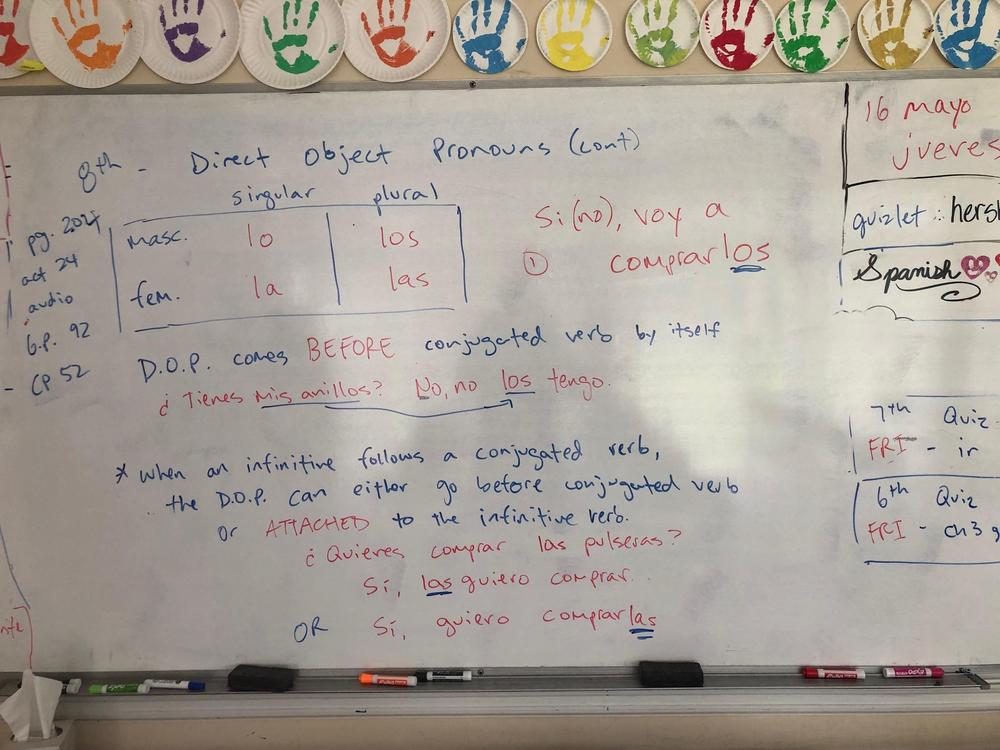 8th - Direct Object Pronouns (cont)
singular plural
masc. lo los
fem. la las
pg. 202
act 24
audio
G.P. 92
- CP 52
Si (no), voy a
① comprarlos
D.O.P. comes BEFORE conjugated verb by itself
¿Tienes mis anillos? No, no los tengo.
* When an infinitive follows a conjugated verb,
the D.O.P. can either go before conjugated verb
or ATTACHED to the infinitive verb.
¿Quieres comprar las pulseras?
Sí, las quiero comprar.
OR Sí, quiero comprarlas
16 mayo
jueves
quizlet : hersh
Spanish
7th Quiz
FRI - ir
6th Quiz
FRI - ch 3